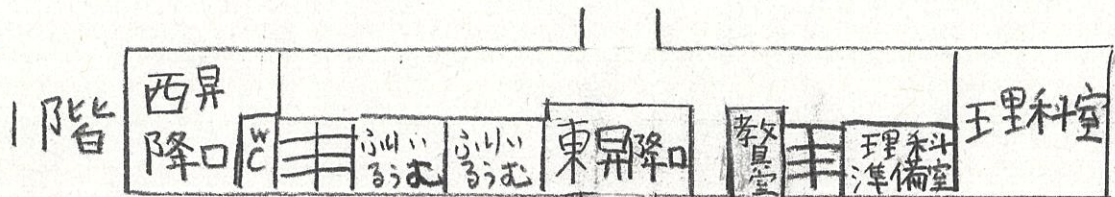 1階
西昇
降口
WC
ふりい
るうむ
ふりい
るうむ
東昇降口
教具室
理科
準備室
理科室